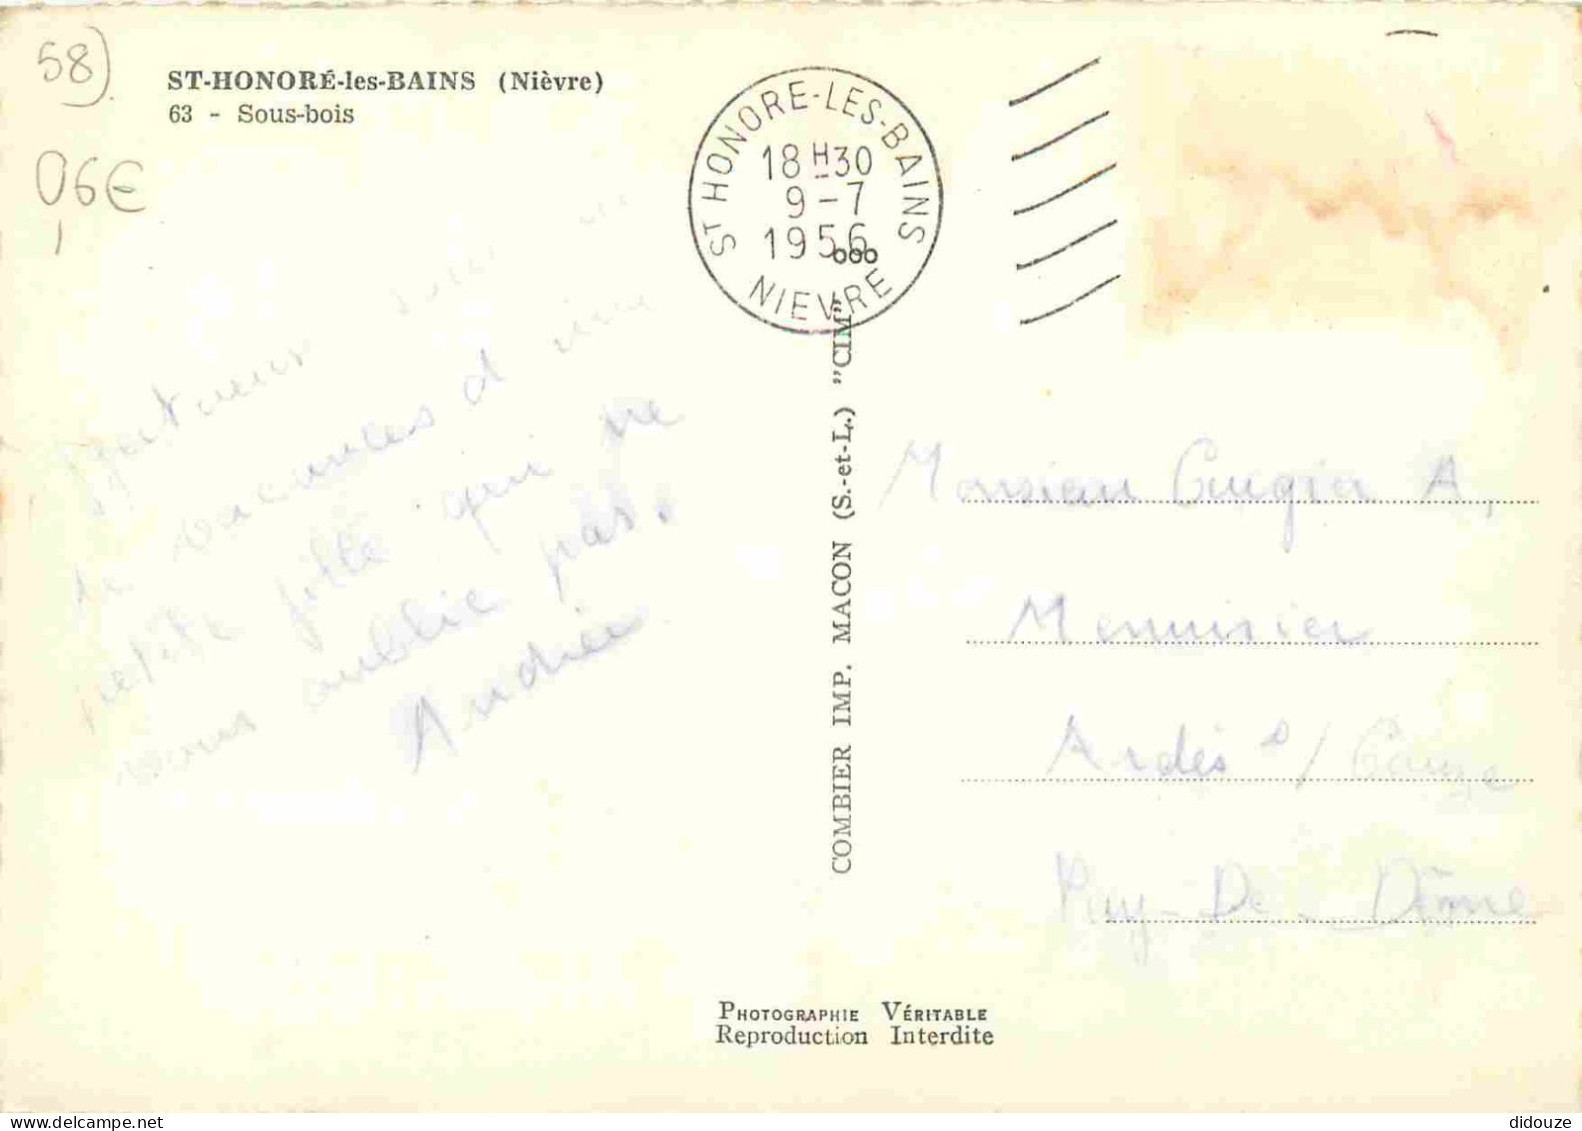 58)
ST-HONORÉ-les-BAINS (Nièvre)
63 - Sous-bois
06€
ST HONORE-LES-BAINS
18H30
9-7
1956
NIEVRE
de vacances d'une
petite fille qui ne
vous oublie pas.
Andrée
COMBIER IMP. MACON (S.-et-L.) "CIM"
Monsieur A,
Menuisier
Ardes s/ Couze
Puy-De-Dôme
PHOTOGRAPHIE VÉRITABLE
Reproduction Interdite
didouze